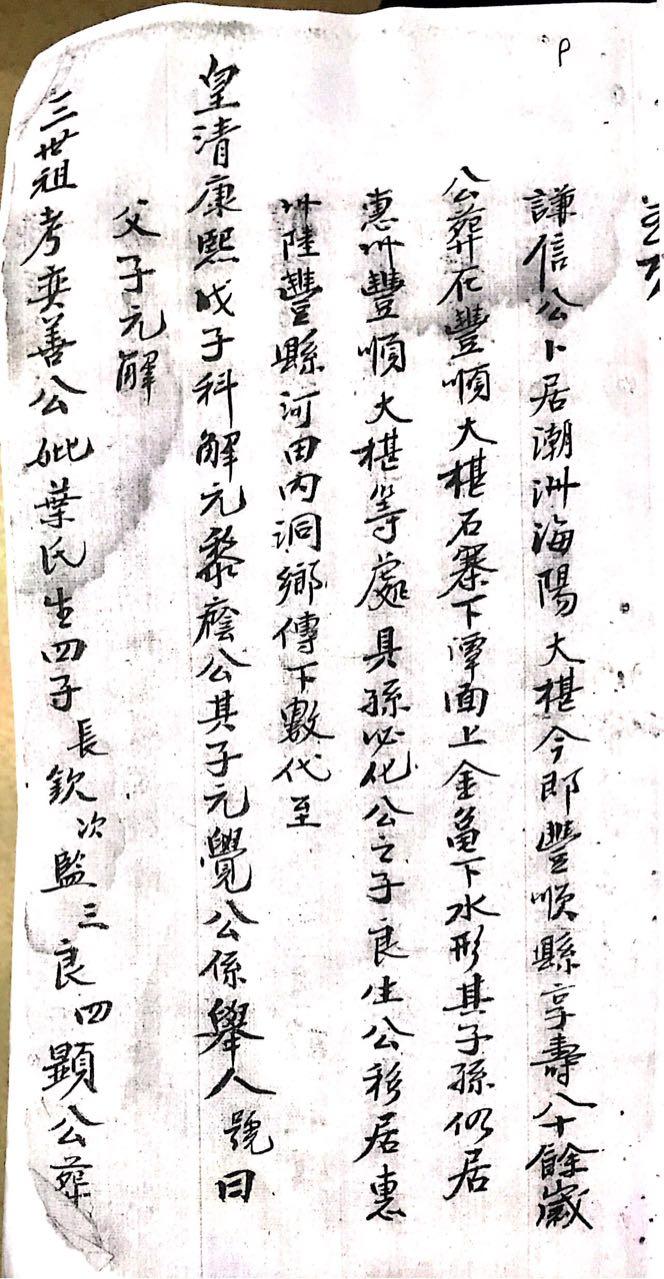 謙信公卜居潮洲海陽大椹今即豐順縣享壽八十餘歲
公葬在豐順大椹石寨下潭面上金龜下水形其子孫仍居
惠州豐順大椹等處具孫必化公之子良生公移居惠
州陸豐縣河田內洞鄉傳下數代至
皇清康熙戊子科解元黎蔭公其子元覺公係舉人號曰
父子元解
三世祖考奕善公妣葉氏生四子長欽次監三良四顯公葬